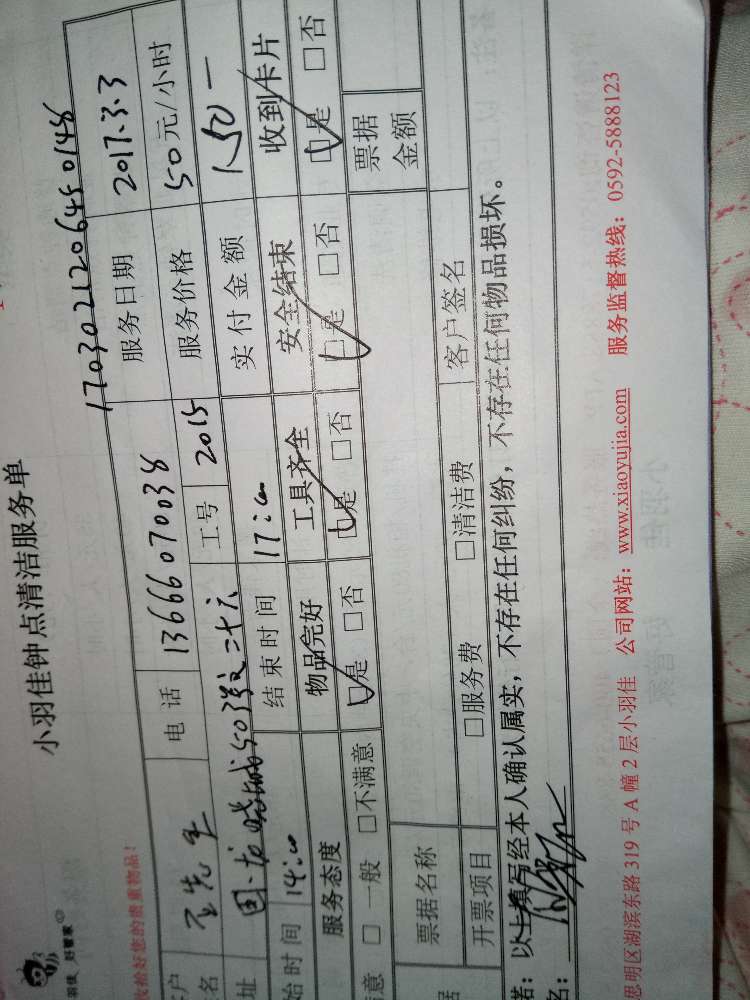 小羽佳钟点清洁服务单
170302120645 0148
好管家
收拾好您的贵重物品!
户名 王先生 电话 13666070038 服务日期 2017.3.3
址 工号 2015 服务价格 50元/小时
始时间 14:00 结束时间 17:00 实付金额 150一
服务态度 物品完好 工具齐全 安全结束 收到卡片
意 □一般 □不满意 □是 □否 □是 □否 □是 □否 □是 □否
票据名称 票据金额
开票项目 □服务费 □清洁费 客户签名
诺:以上填写经本人确认属实,不存在任何纠纷,不存在任何物品损坏。
名:
思明区湖滨东路 319 号 A 幢 2 层小羽佳 公司网站:www.xiaoyujia.com 服务监督热线:0592-5888123